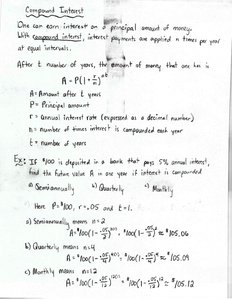 Compound Interest
One can earn interest on a principal amount of money.
With compound interest, interest payments are applied n times per year
at equal intervals.
After t number of years, the amount of money that one has is
A = P(1 + r/n)^nt
A = Amount after t years
P = Principal amount
r = annual interest rate (expressed as a decimal number)
n = number of times interest is compounded each year
t = number of years
Ex: If $100 is deposited in a bank that pays 5% annual interest,
find the future value A in one year if interest is compounded
a) Semiannually b) Quarterly c) Monthly
Here P = $100, r = .05 and t = 1.
a) Semiannually means n = 2
A = $100(1 + .05/2)^2(1) = $100(1 + .05/2)^2 ≈ $105.06
b) Quarterly means n = 4
A = $100(1 + .05/4)^4(1) = $100(1 + .05/4)^4 ≈ $105.09
c) Monthly means n = 12
A = $100(1 + .05/12)^12(1) = $100(1 + .05/12)^12 ≈ $105.12